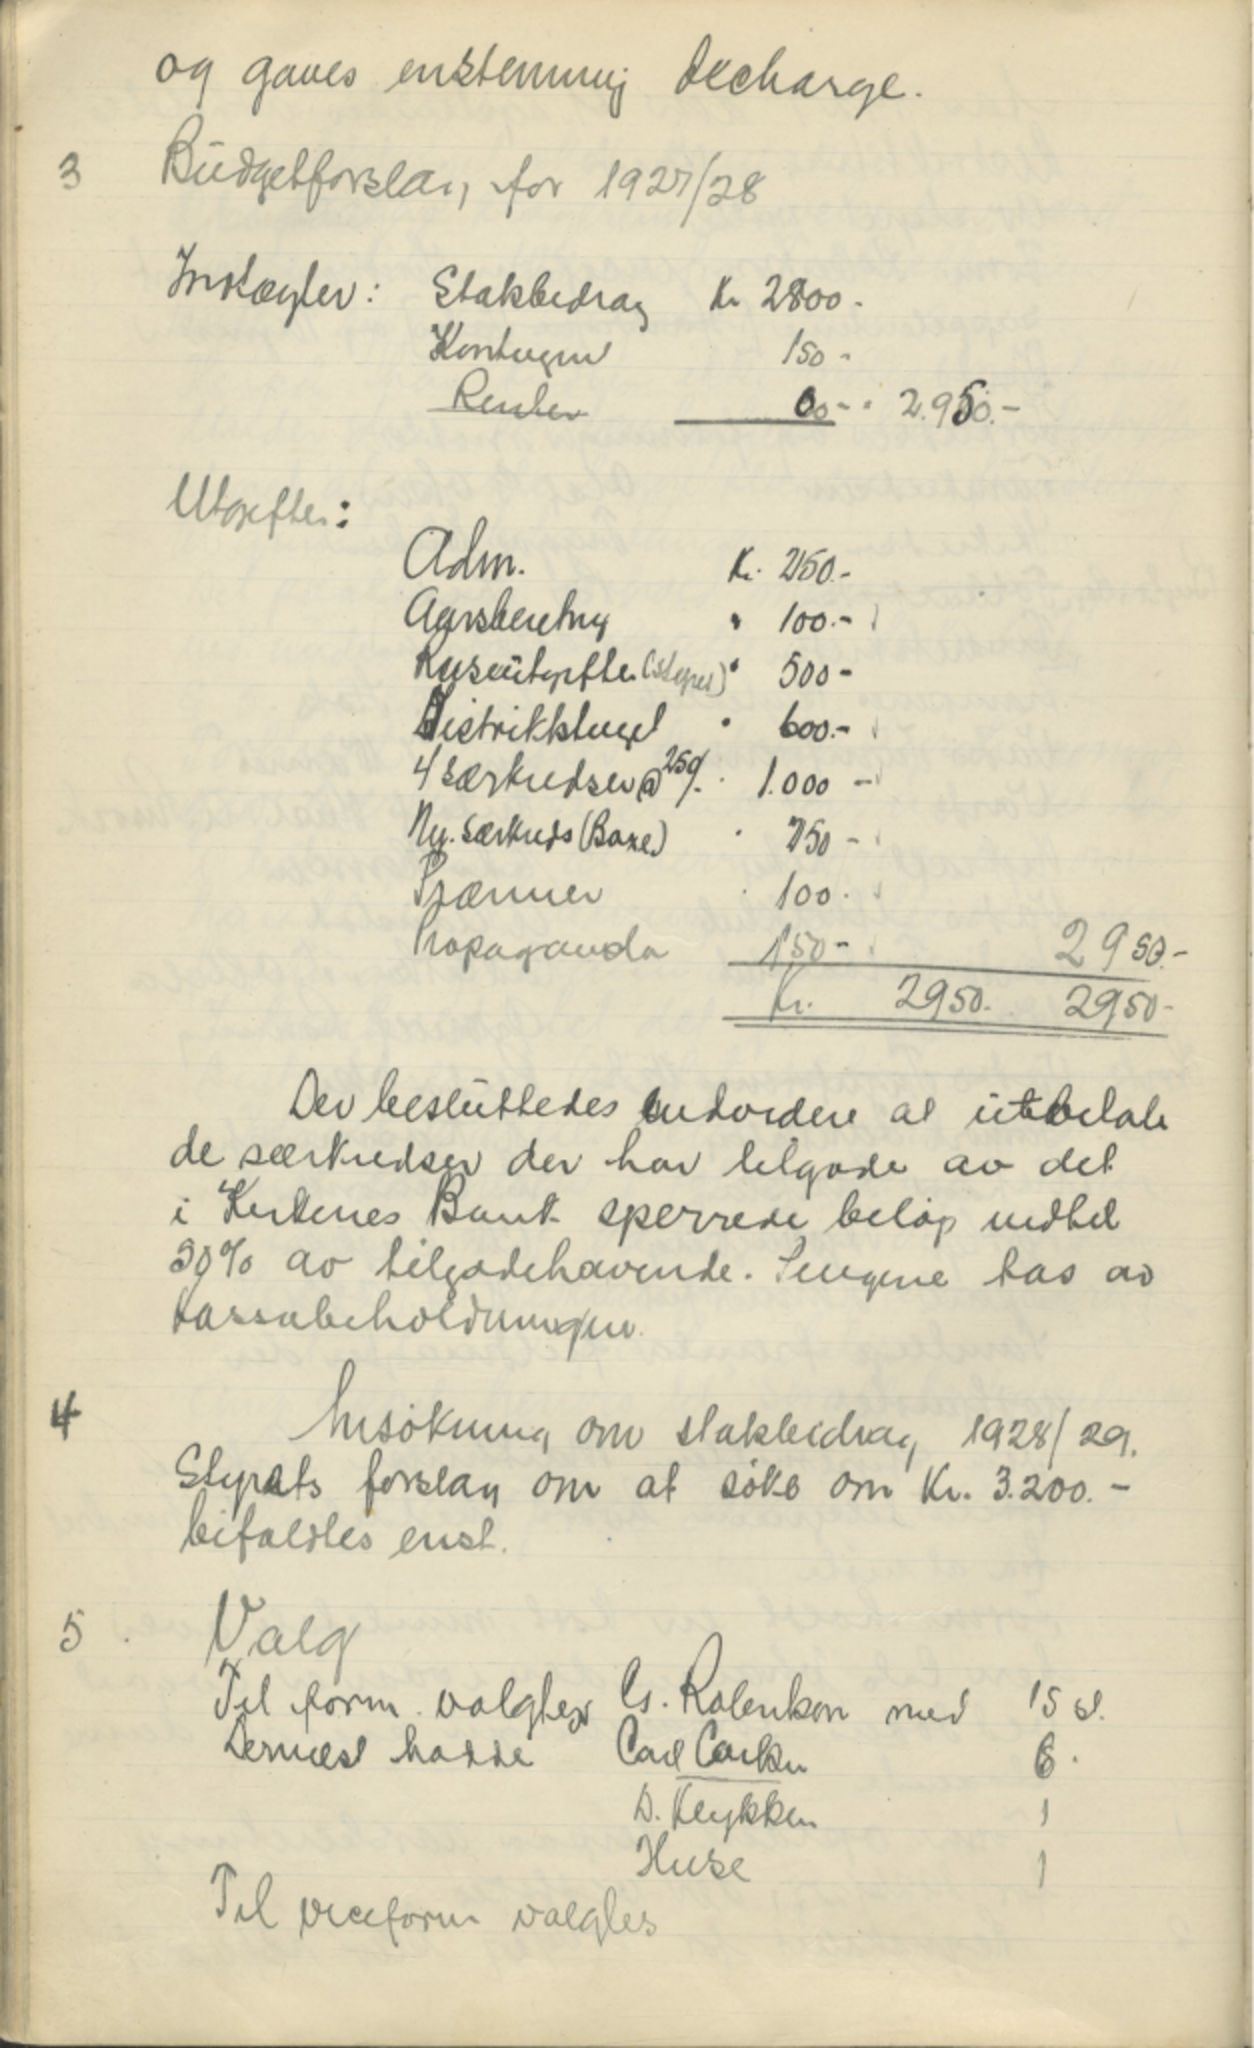 og gaves enstemmig decharge.
3 Budgetforslag for 1927/28
Indtægter: Statsbidrag Kr 2800.-
Kontingent 150 -
Renter 00 - " 2.950.-
Utgifter:
Adm. Kr. 250.-
Aarsberetning " 100.-
Reiseutgifter (styret) " 500 -
Distriktstinget " 600.-
4 særkredser @ 250/. " 1.000 -
Ny. særkreds (Boxe) " 250 -
Præmier " 100.
Propaganda 150 - 2950.-
Kr. 2950. 2950-
Der besluttedes at utbetale
de særkredser der har tilgode av det
i Kirkenes Bank sperrede beløp indtil
50% av tilgodehavende. Pengene tas av
kassabeholdningen.
4 Ansøkning om statsbidrag 1928/29.
Styrets forslag om at søke om Kr. 3.200.-
bifaldtes enst.
5. Valg
Til form. valgtes Cs. med 15 st.
Dernæst hadde Carl 6 "
D. Klykken 1
Huse 1
Til viceform valgtes